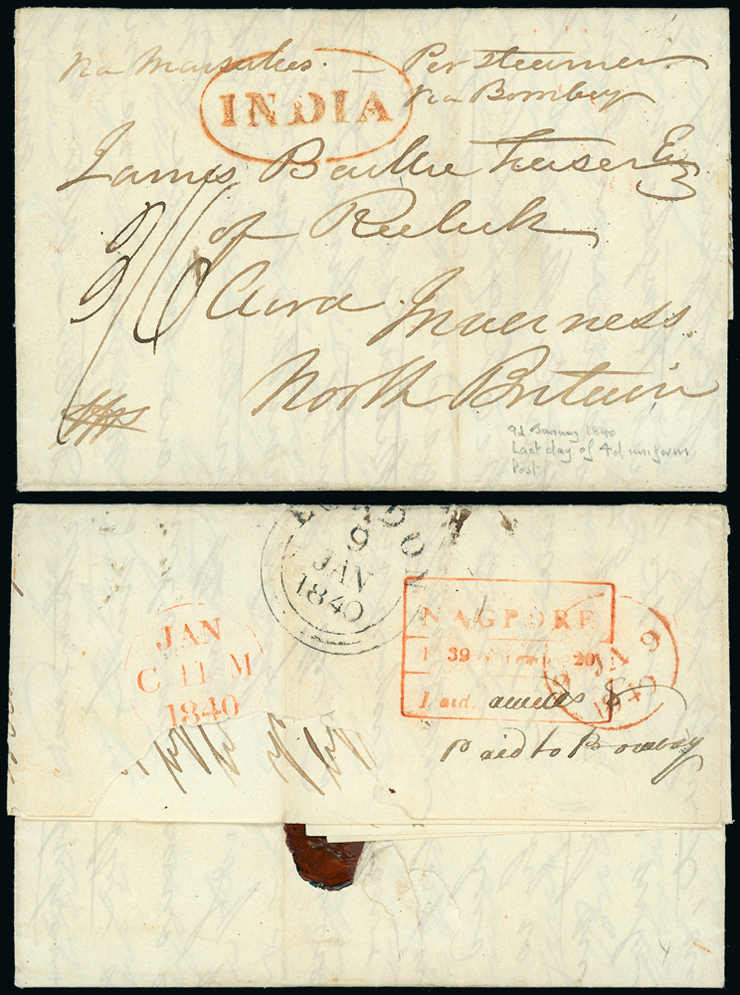 via Marseilles. – Per steamer
via Bombay
INDIA
James Baillie Fraser Esq
of Reelick
Inverness
3/6
North Britain
9d January 1840
Last day of 4d uniform
Post
LONDON
9
JAN
1840
JAN
C 11 M
1840
NAGPORE
39 20
Paid. annas 8
Paid to Bombay
9 JA 9
1840